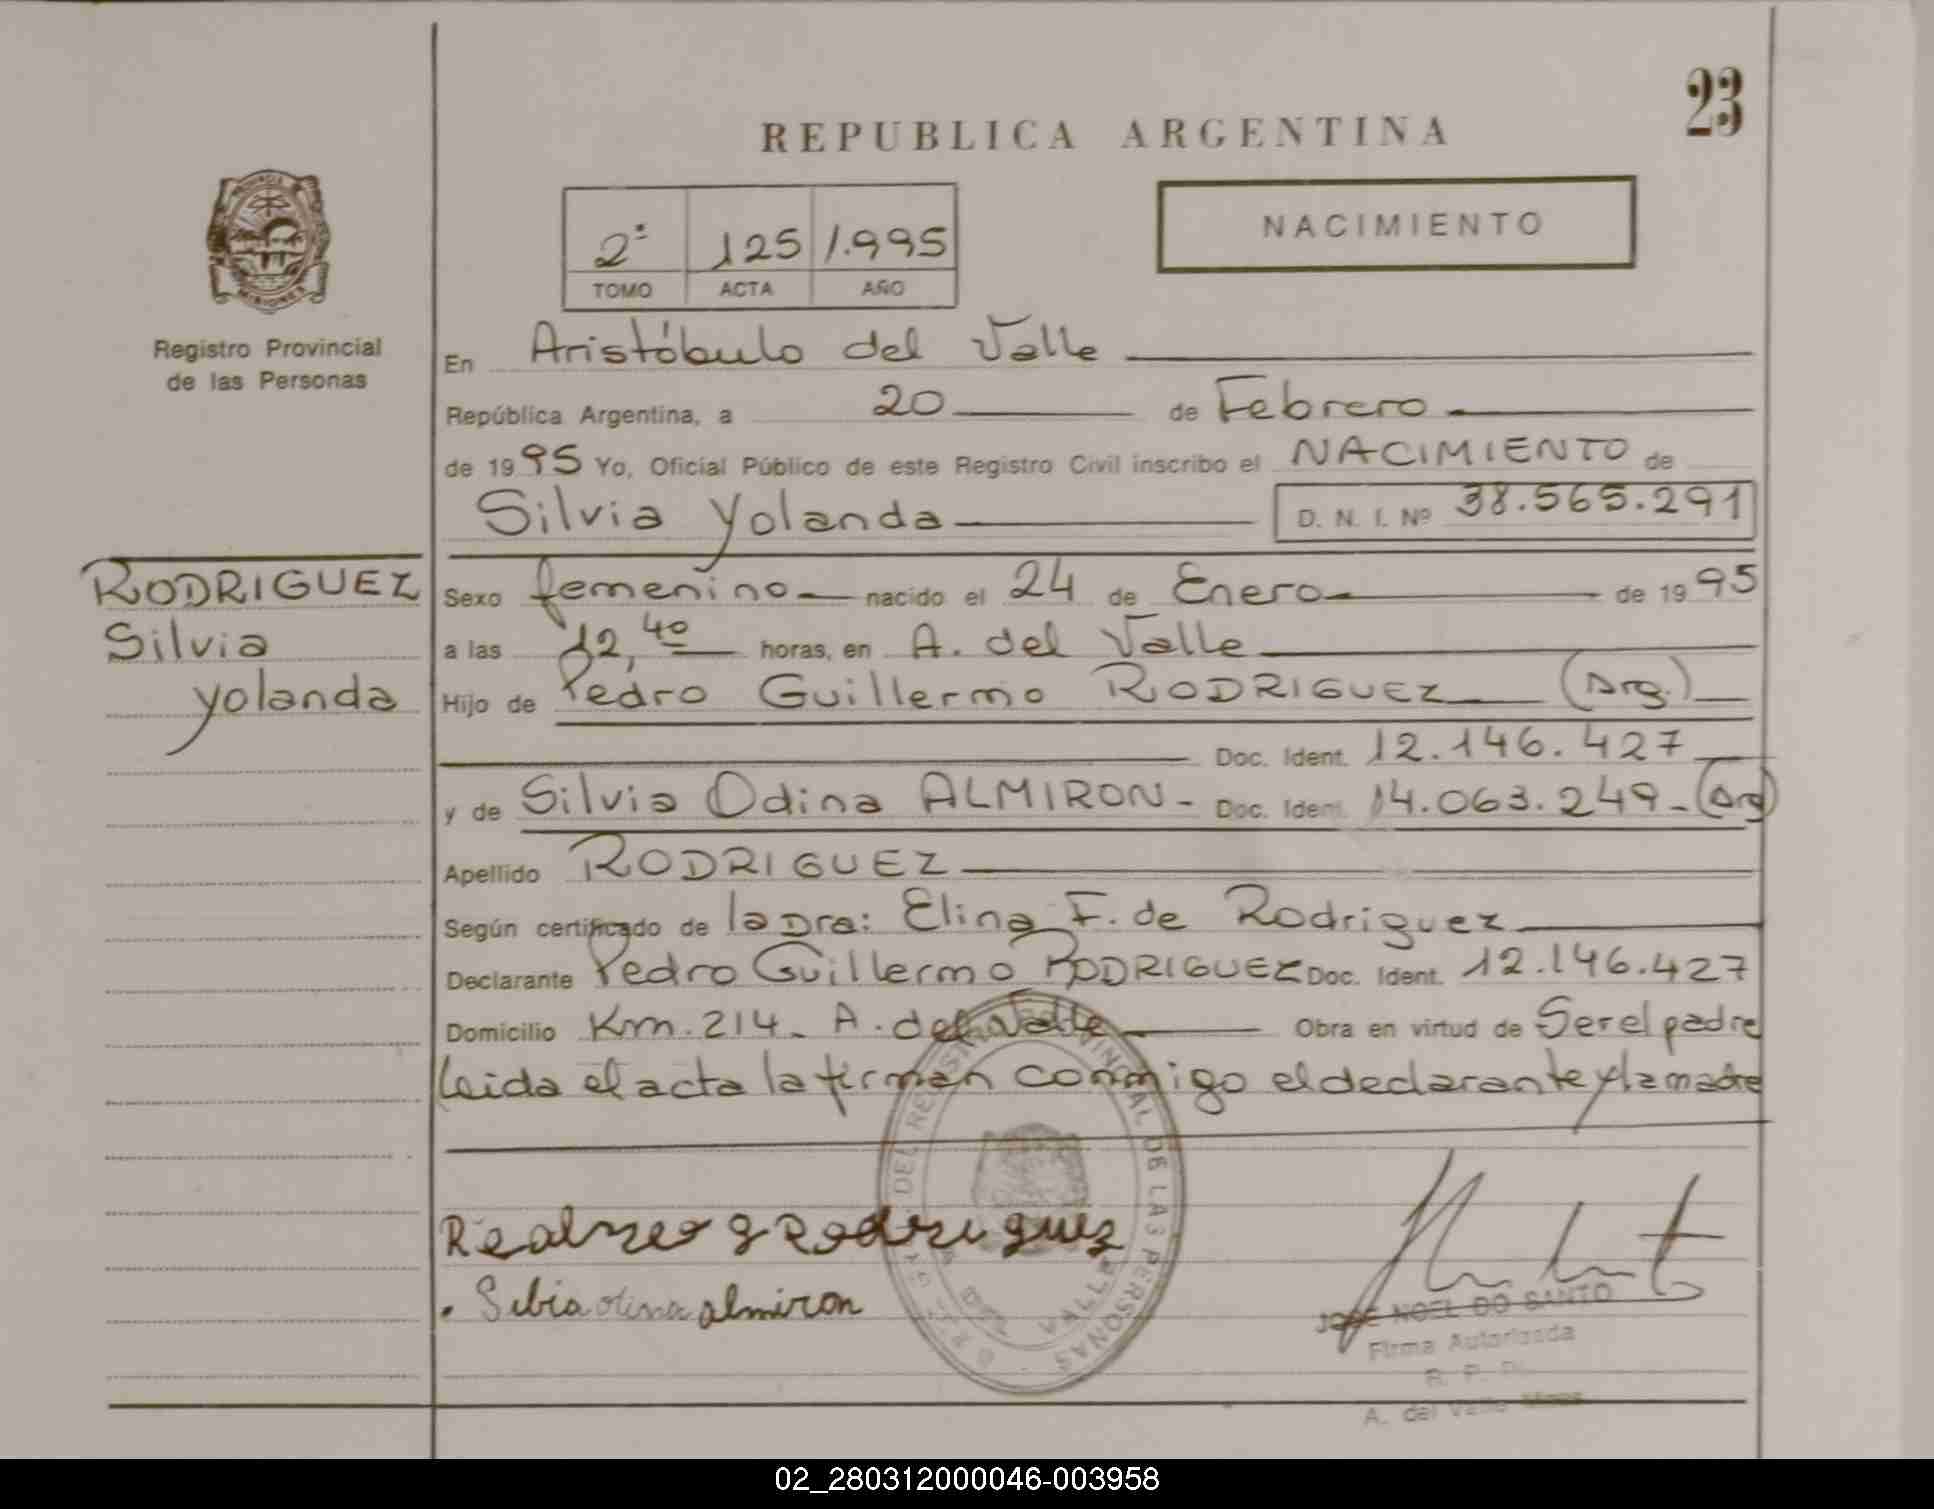 23
REPUBLICA ARGENTINA
NACIMIENTO
2º 125 1.995
TOMO ACTA AÑO
PROVINCIA
MISIONES
Registro Provincial
de las Personas
En Aristóbulo del Valle
República Argentina, a 20 de Febrero
de 1995 Yo, Oficial Público de este Registro Civil inscribo el NACIMIENTO de
Silvia Yolanda D. N. I. Nº 38.565.291
RODRIGUEZ
Silvia
Yolanda
Sexo femenino nacido el 24 de Enero de 1995
a las 12,40 horas, en A. del Valle
Hijo de Pedro Guillermo RODRIGUEZ (Arg.)
Doc. Ident. 12.146.427
y de Silvia Odina ALMIRON - Doc. Ident. 14.063.249 - (Arg)
Apellido RODRIGUEZ
Según certificado de la Dra: Elina F. de Rodriguez
Declarante Pedro Guillermo RODRIGUEZ Doc. Ident. 12.146.427
Domicilio Km. 214 - A. del Valle Obra en virtud de Ser el padre
Leida el acta la firman conmigo el declarante y la madre
DEL REGISTRO PROVINCIAL DE LAS PERSONAS
DEL VALLE
Rodriguez
almiron
JOSE NOEL DO SANTO
Firma Autorizada
R. P. P.
A. del Valle Mnes
02_280312000046-003958